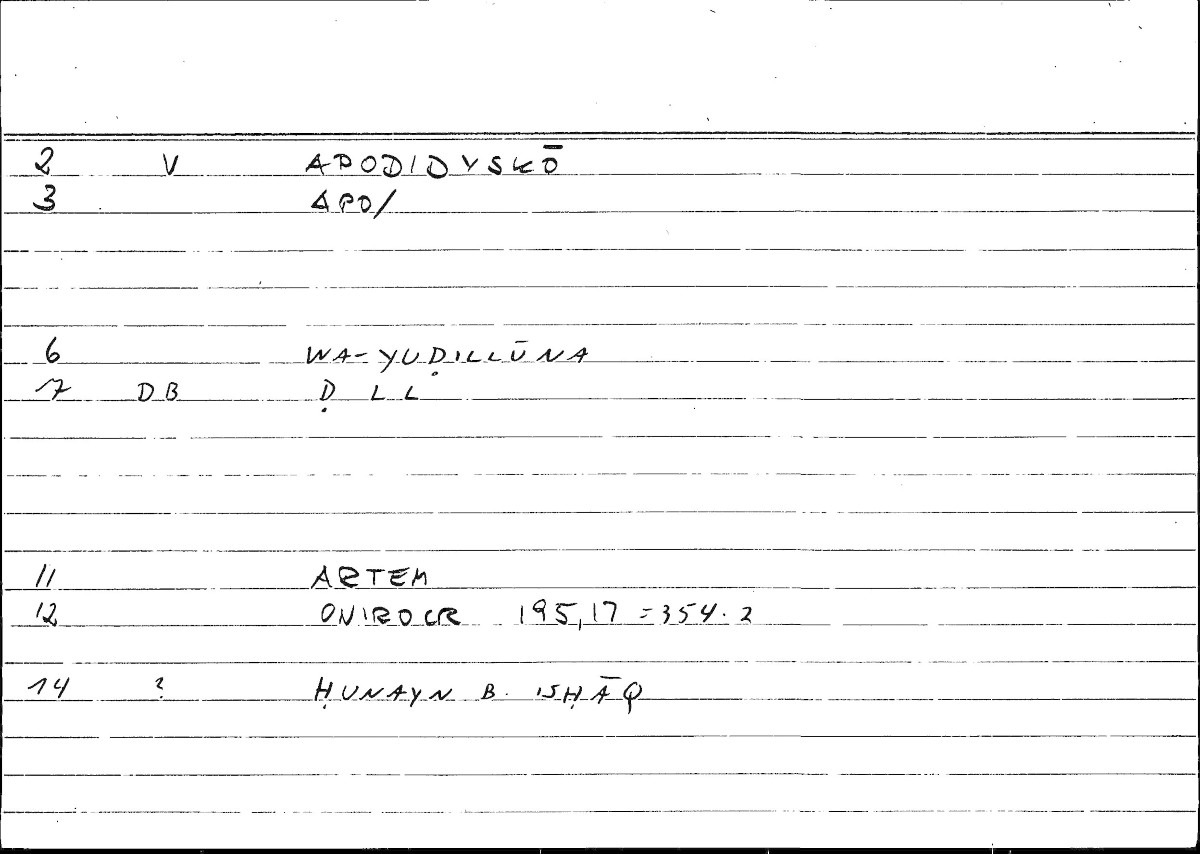 2 V APODIDYSKŌ
3 APO/
6 WA-YUḌILLŪNA
17 DB Ḍ L L
11 ARTEM
12 ONIROCR 195,17 = 354.2
14 ? ḤUNAYN B. ISḤĀQ